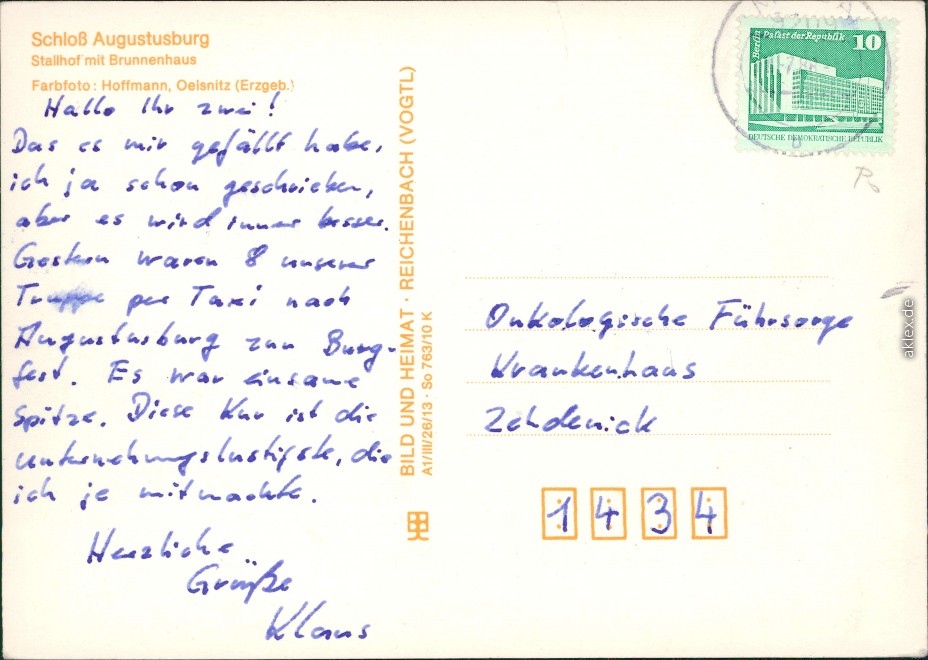 Schloß Augustusburg
Stallhof mit Brunnenhaus
Farbfoto: Hoffmann, Oelsnitz (Erzgeb.)
Hallo Ihr zwei!
Das es mir gefällt habe,
ich ja schon geschrieben,
aber es wird immer besser.
Gestern waren 8 unserer
Truppe per Taxi nach
Augustusburg zum Burg-
fest. Es war einsame
Spitze. Diese Kur ist die
unternehmungslustigste, die
ich je mitmachte.
Herzliche
Grüße
Klaus
BILD UND HEIMAT · REICHENBACH (VOGTL)
A1/III/26/13 · So 763/10 K
Berlin Palast der Republik 10
DEUTSCHE DEMOKRATISCHE REPUBLIK
Onkologische Führsorge
Krankenhaus
Zehdenick
1434
aklex.de